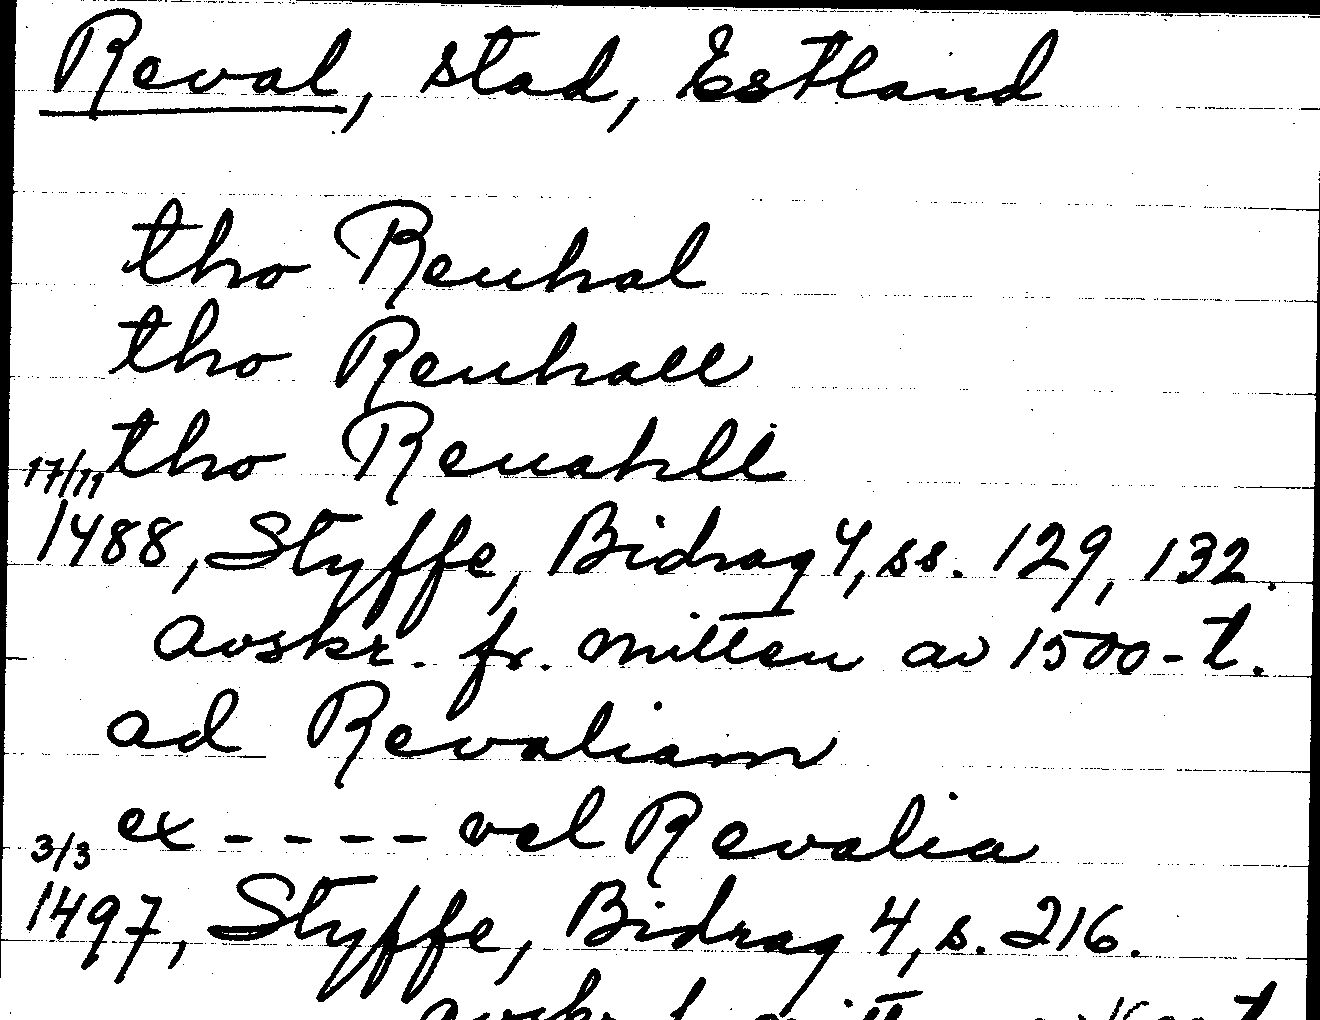 Reval, stad, Estland
tho Reuhal
tho Reuhall
tho Reuahll
17/11
1488, Styffe, Bidrag 4, ss. 129, 132.
avskr. fr. mitten av 1500-t.
ad Revaliam
ex - - - - vel Revalia
3/3
1497, Styffe, Bidrag 4, s. 216.